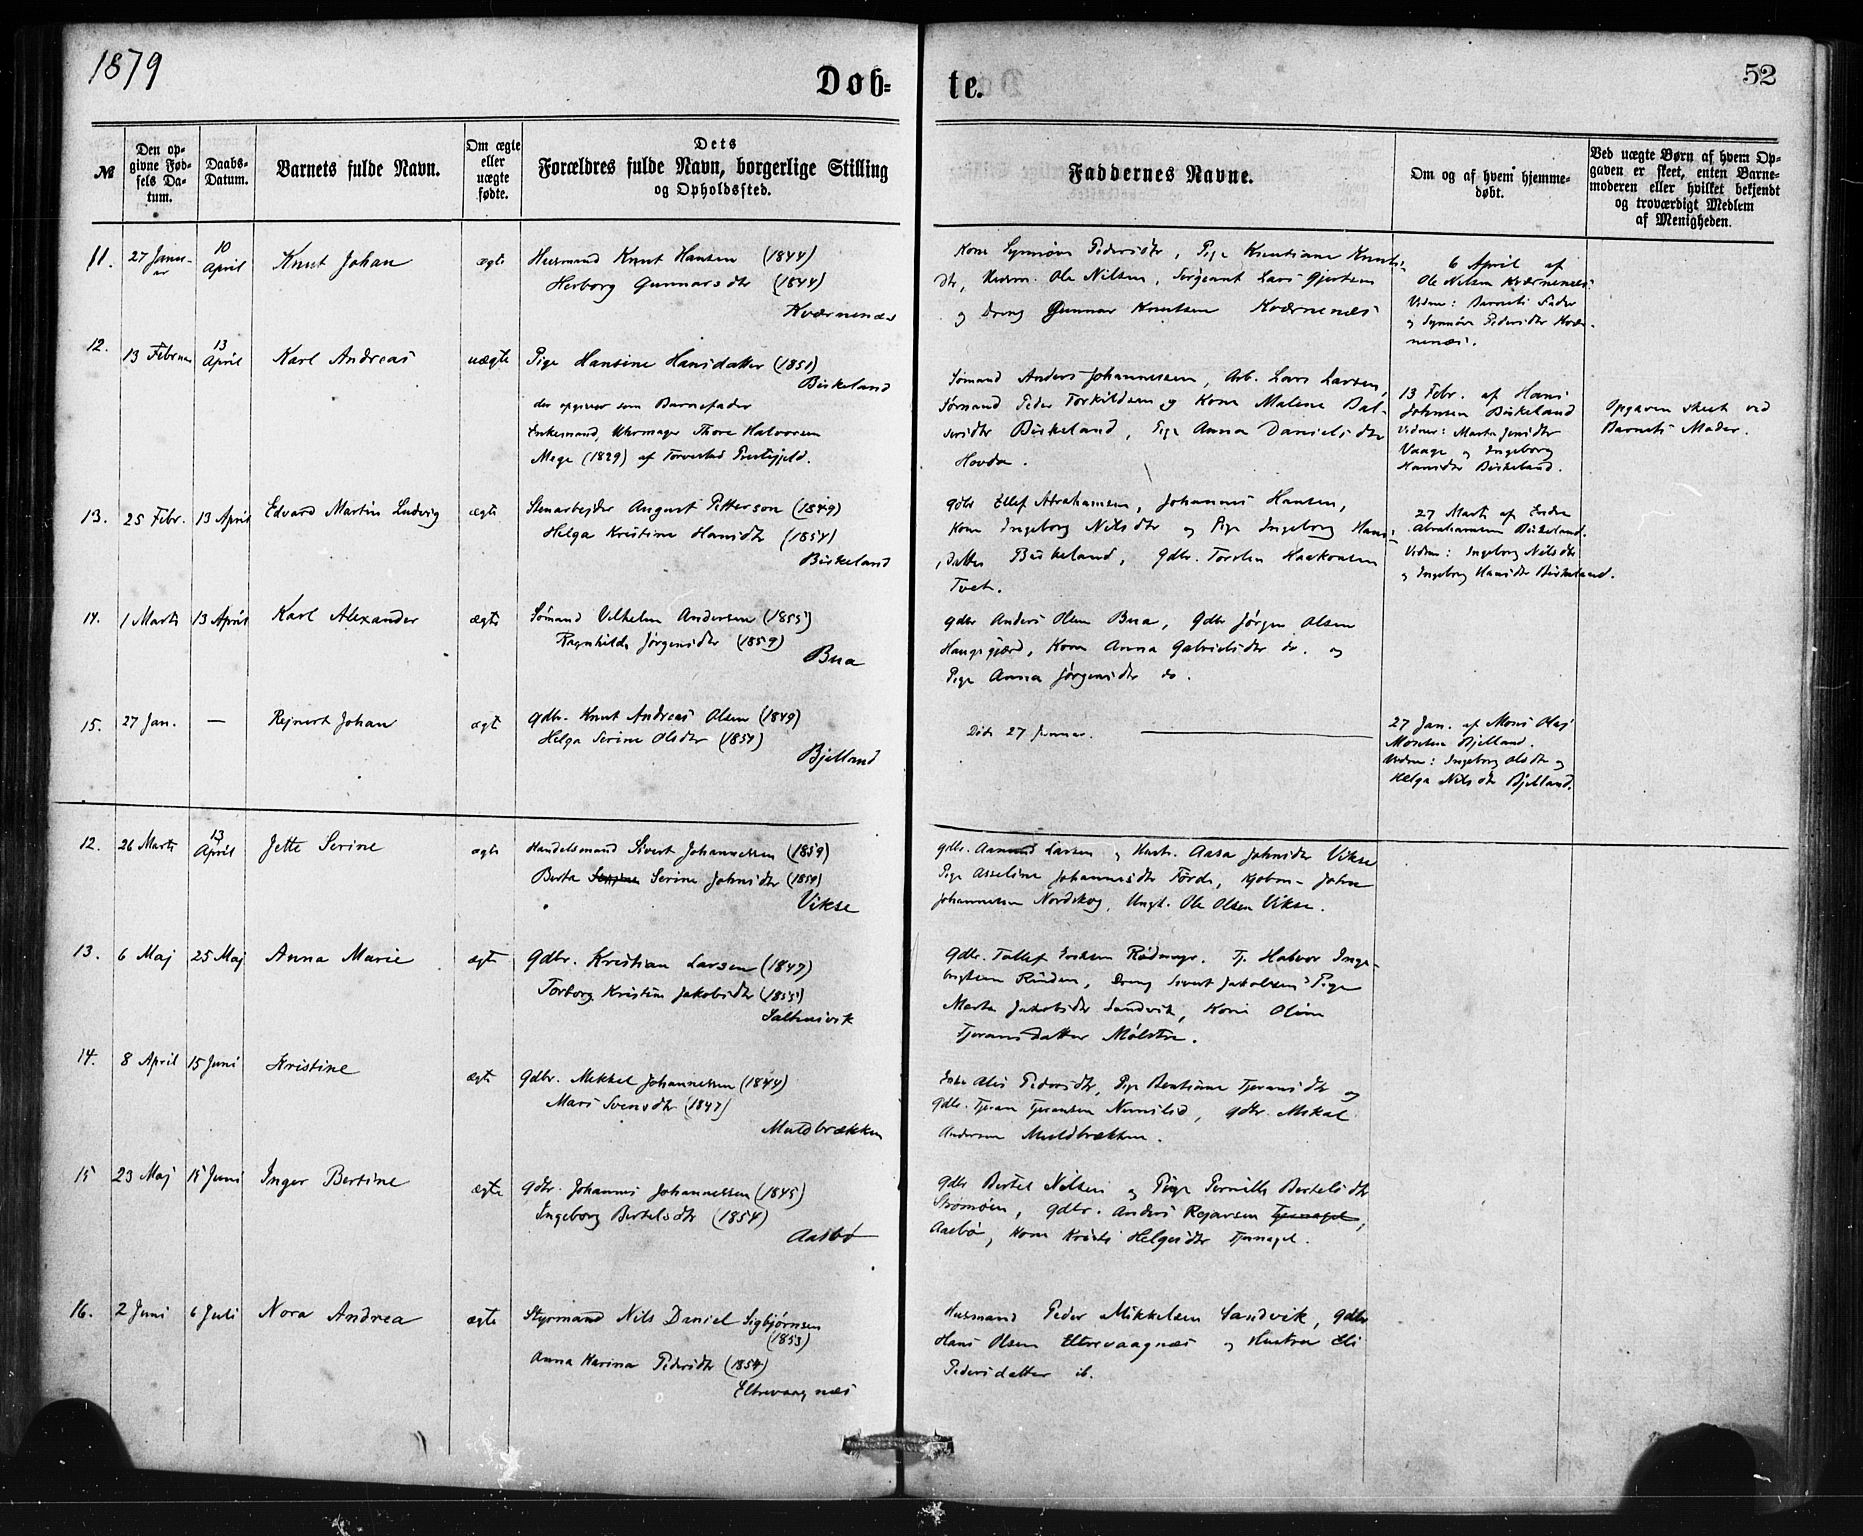 1879
Døb-
te.
52
№
Den op-
givne Fød-
sels Da-
tum.
Daabs-
Datum.
Barnets fulde Navn.
Om ægte
eller
uægte
fødte.
Dets
Forældres fulde Navn, borgerlige Stilling
og Opholdssted.
Faddernes Navne.
Om og af hvem hjemme-
døbt.
Ved uægte Børn af hvem Op-
gaven er skeet, enten Barne-
moderen eller hvilket bekjendt
og troværdigt Medlem
af Menigheden.
11. 27 Janu-
ar
10
April
Knut Johan
ægte
Huusmand Knut Hansen (1844)
Herborg Gunnarsdtr (1844)
Kværnenæs
Kone Synnøve Pedersdtr, Pige Knutiane Knuts-
dtr, Husm. Ole Nilsen, Sergeant Lars Gjertsen
og Dreng Gunnar Knutsen Kværnenæs
6 April af
Ole Nilsen Kværnenæs
Vidner: Barnets Fader
og Synnøve Pedersdtr Kvær-
nenæs.
12. 13 Februar
13
April
Karl Andreas
uægte
Pige Hansine Hansdatter (1851)
Birkeland
der opgiver som Barnefader
Enkemand, Uhrmager Thore Halvorsen
Mæge (1829) af Torvestad Prestegjeld.
Sømand Anders Johannessen, Arb. Lars Larsen,
Sømand Peder Torkildsen og Kone Malene Bal-
sersdtr Birkeland, Pige Anna Danielsdtr
Hovda.
13 Febr. af Hans
Johnsen Birkeland
Vidner: Marta Jensdtr
Vaage og Ingeborg
Hansdtr Birkeland.
Opgaven skeet ved
Barnets Moder.
13. 25 Febr. 13 April Edvard Martin Ludvig ægte
Stenarbejder August Petterson (1849)
Helga Kristine Hansdtr (1854)
Birkeland
Gdbr Ellef Abrahamsen, Johannes Hansen,
Kone Ingeborg Nilsdtr og Pige Ingeborg Hans-
datter Birkeland, Gdbr. Torsten Haakonsen
Tvet.
27 Marts af Endre
Abrahamsen Birkeland.
Vidner: Ingeborg Nilsdtr
og Ingeborg Hansdtr Birkeland.
14. 1 Marts 13 April Karl Alexander ægte
Sømand Vilhelm Andersen (1855)
Ragnhilde Jørgensdtr (1859)
Bua
Gdbr Anders Olsen Bua, Gdbr Jørgen Olsen
Haugsgjerd, Kone Anna Gabrielsdtr do. og
Pige Anna Jørgensdtr do.
15. 27 Jan. — Rejnert Johan ægte
Gdbr. Knut Andreas Olsen (1849)
Helga Serine Olsdtr (1851)
Bjelland
Død 27 Januar.
27 Jan. af Mons Olaj
Monsen Bjelland.
Vidner: Ingeborg Olsdtr og
Helga Nilsdtr Bjelland.
12. 26 Marts
13
April
Jette Serine
ægte
Handelsmand Sivert Johannessen (1859)
Berta Serine Johnsdtr (1859)
Vikse
Gdbr. Aamund Larsen og Hustr. Aasa Johnsdtr Vikse
Pige Asseline Johannesdtr Førde, Kjøbm. John
Johannessen Nordskog, Ungk. Ole Olsen Vikse.
13. 6 Maj 25 Maj Anna Marie ægte
Gdbr. Kristian Larsen (1847)
Torborg Kristine Jakobsdtr (1855)
Saltnesvik
Gdbr. Tollef Iversen Rødmyr. Tj. Halvor Inge-
brigtsen Rinden, Dreng Sivert Jakobsen, Pige
Marta Jakobsdtr Sandvik, Kone Oline
Tjeransdatter Mølstre.
14. 8 April 15 Juni Kristine
ægte
Gdbr. Mikkel Johannessen (1844)
Mari Svensdtr (1847)
Muldbrækken
Enke Alis Pedersdtr, Pige Bentiane Tjeransdtr og
Gdbr. Tjeran Tjeransen Nernslid, Gdbr. Mikal
Andersen Muldbrækken.
15 23 Maj 15 Juni Inger Bertine
ægte
Gdbr. Johannes Johannessen (1845)
Ingeborg Bertelsdtr (1854)
Aasbø
Gdbr Bertel Nilsen og Pige Pernille Bertelsdtr
Strømøen, Gdbr. Anders Rejarsen Tjernagel,
Aasbø, Kone Kristi Helgesdtr Tjernagel.
16. 2 Juni 6 Juli Nora Andrea
ægte
Styrmand Nils Daniel Sigbjørnsen
(1853)
Anna Karina Pedersdtr (1854)
Eltrevaagnæs
Huusmand Peder Mikkelsen Sandvik, Gdbr
Hans Olsen Eltrevaagnæs og Hustru Eli
Pedersdatter ib.